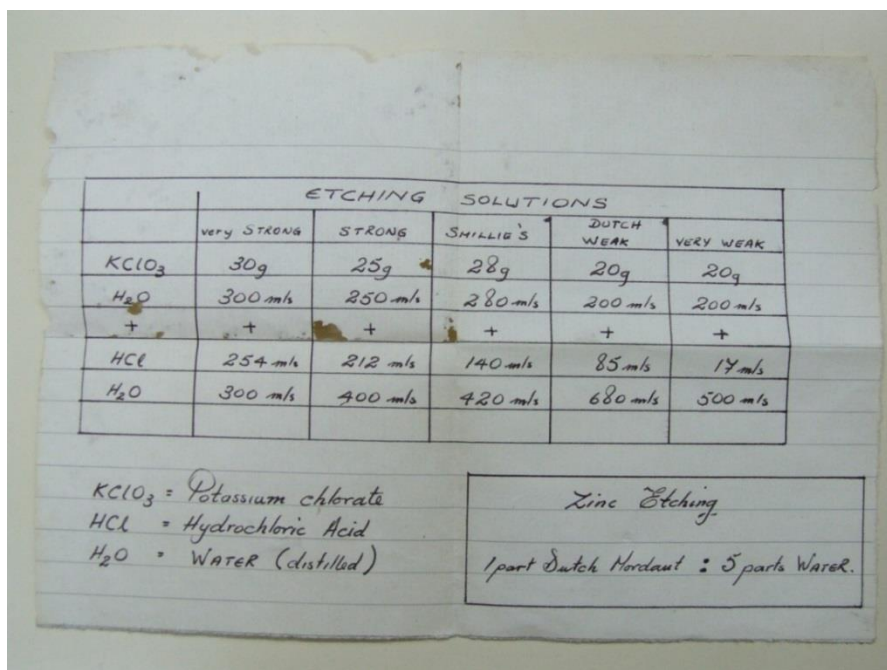 ETCHING SOLUTIONS
very STRONG STRONG SMILLIE'S DUTCH WEAK VERY WEAK
KClO3 30g 25g 28g 20g 20g
H2O 300 mls 250 mls 280 mls 200 mls 200 mls
+ + + + + +
HCl 254 mls 212 mls 140 mls 85 mls 17 mls
H2O 300 mls 400 mls 420 mls 680 mls 500 mls
KClO3 = Potassium chlorate
HCl = Hydrochloric Acid
H2O = WATER (distilled)
Zinc Etching
1 part Dutch Mordant : 5 parts WATER.